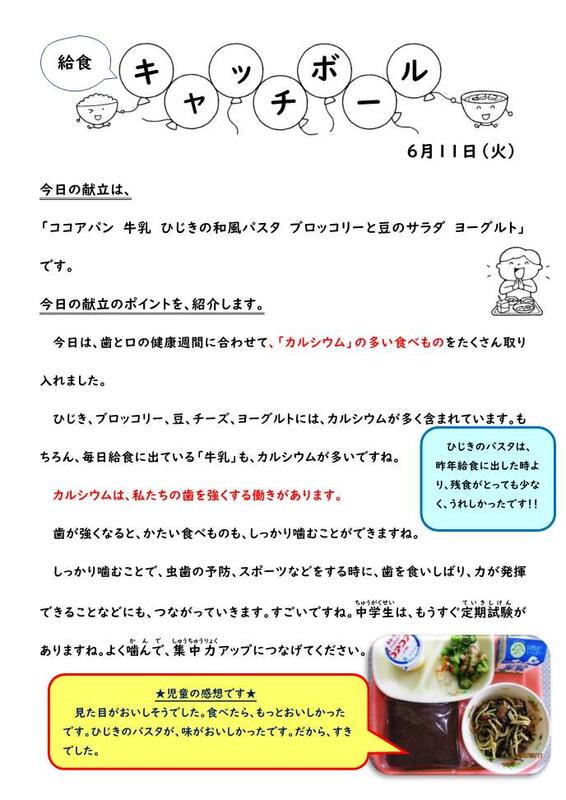 給食
キャッチボール
6月11日(火)
今日の献立は、
「ココアパン 牛乳 ひじきの和風パスタ ブロッコリーと豆のサラダ ヨーグルト」
です。
今日の献立のポイントを、紹介します。
今日は、歯と口の健康週間に合わせて、「カルシウム」の多い食べものをたくさん取り
入れました。
ひじき、ブロッコリー、豆、チーズ、ヨーグルトには、カルシウムが多く含まれています。も
ちろん、毎日給食に出ている「牛乳」も、カルシウムが多いですね。
ひじきのパスタは、
昨年給食に出した時よ
り、残食がとっても少な
く、うれしかったです!!
カルシウムは、私たちの歯を強くする働きがあります。
歯が強くなると、かたい食べものも、しっかり噛むことができますね。
しっかり噛むことで、虫歯の予防、スポーツなどをする時に、歯を食いしばり、力が発揮
ちゅうがくせい ていきしけん
できることなどにも、つながっていきます。すごいですね。中学生は、もうすぐ定期試験が
かんで しゅうちゅうりょく
ありますね。よく噛んで、集中力アップにつなげてください。
★児童の感想です★
見た目がおいしそうでした。食べたら、もっとおいしかった
です。ひじきのパスタが、味がおいしかったです。だから、すき
でした。